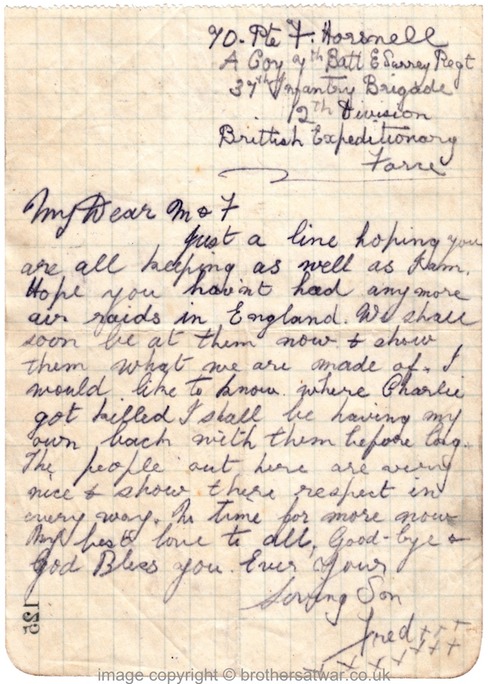 70. Pte F. Horsnell
A Coy 7th Batt E Surrey Regt
37th Infantry Brigade
12th Division
Brittish Expeditionary
Force
My Dear M & F
Just a line hoping you
are all keeping as well as I am.
Hope you hav'nt had anymore
air raids in England. We shall
soon be at them now & show
them what we are made of. I
would like to know where Charlie
got killed I shall be having my
own back with them before long.
The people out here are very
nice & show there respect in
every way. No time for more now
My best love to all, Good-bye &
God Bless you. Ever Your
Loving Son
Fred +++
x x x x x x x x
125
image copyright © brothersatwar.co.uk